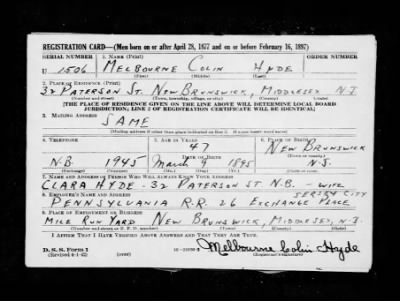 REGISTRATION CARD—(Men born on or after April 28, 1877 and on or before February 16, 1897)
SERIAL NUMBER 1. NAME (Print) ORDER NUMBER
U 1506 MELBOURNE COLIN HYDE
(First) (Middle) (Last)
2. PLACE OF RESIDENCE (Print)
32 PATERSON ST. NEW BRUNSWICK, MIDDLESEX N.J.
(Number and street) (Town, township, village, or city) (County) (State)
[THE PLACE OF RESIDENCE GIVEN ON THE LINE ABOVE WILL DETERMINE LOCAL BOARD
JURISDICTION; LINE 2 OF REGISTRATION CERTIFICATE WILL BE IDENTICAL]
3. MAILING ADDRESS
SAME
(Mailing address if other than place indicated on line 2. If same insert word same)
4. TELEPHONE 5. AGE IN YEARS 6. PLACE OF BIRTH
47 NEW BRUNSWICK
DATE OF BIRTH (Town or county)
N.B. 1945 March 9 1895 N.J.
(Exchange) (Number) (Mo.) (Day) (Yr.) (State or country)
7. NAME AND ADDRESS OF PERSON WHO WILL ALWAYS KNOW YOUR ADDRESS
CLARA HYDE - 32 PATERSON ST. N.B. - WIFE
8. EMPLOYER'S NAME AND ADDRESS JERSEY CITY
PENNSYLVANIA R.R. 26 EXCHANGE PLACE
9. PLACE OF EMPLOYMENT OR BUSINESS
MILE RUN YARD NEW BRUNSWICK, MIDDLESEX, N.J.
(Number and street or R. F. D. number) (Town) (County) (State)
I AFFIRM THAT I HAVE VERIFIED ABOVE ANSWERS AND THAT THEY ARE TRUE.
D. S. S. Form 1
(Revised 4-1-42) (over) Melbourne Colin Hyde
(Registrant's signature)